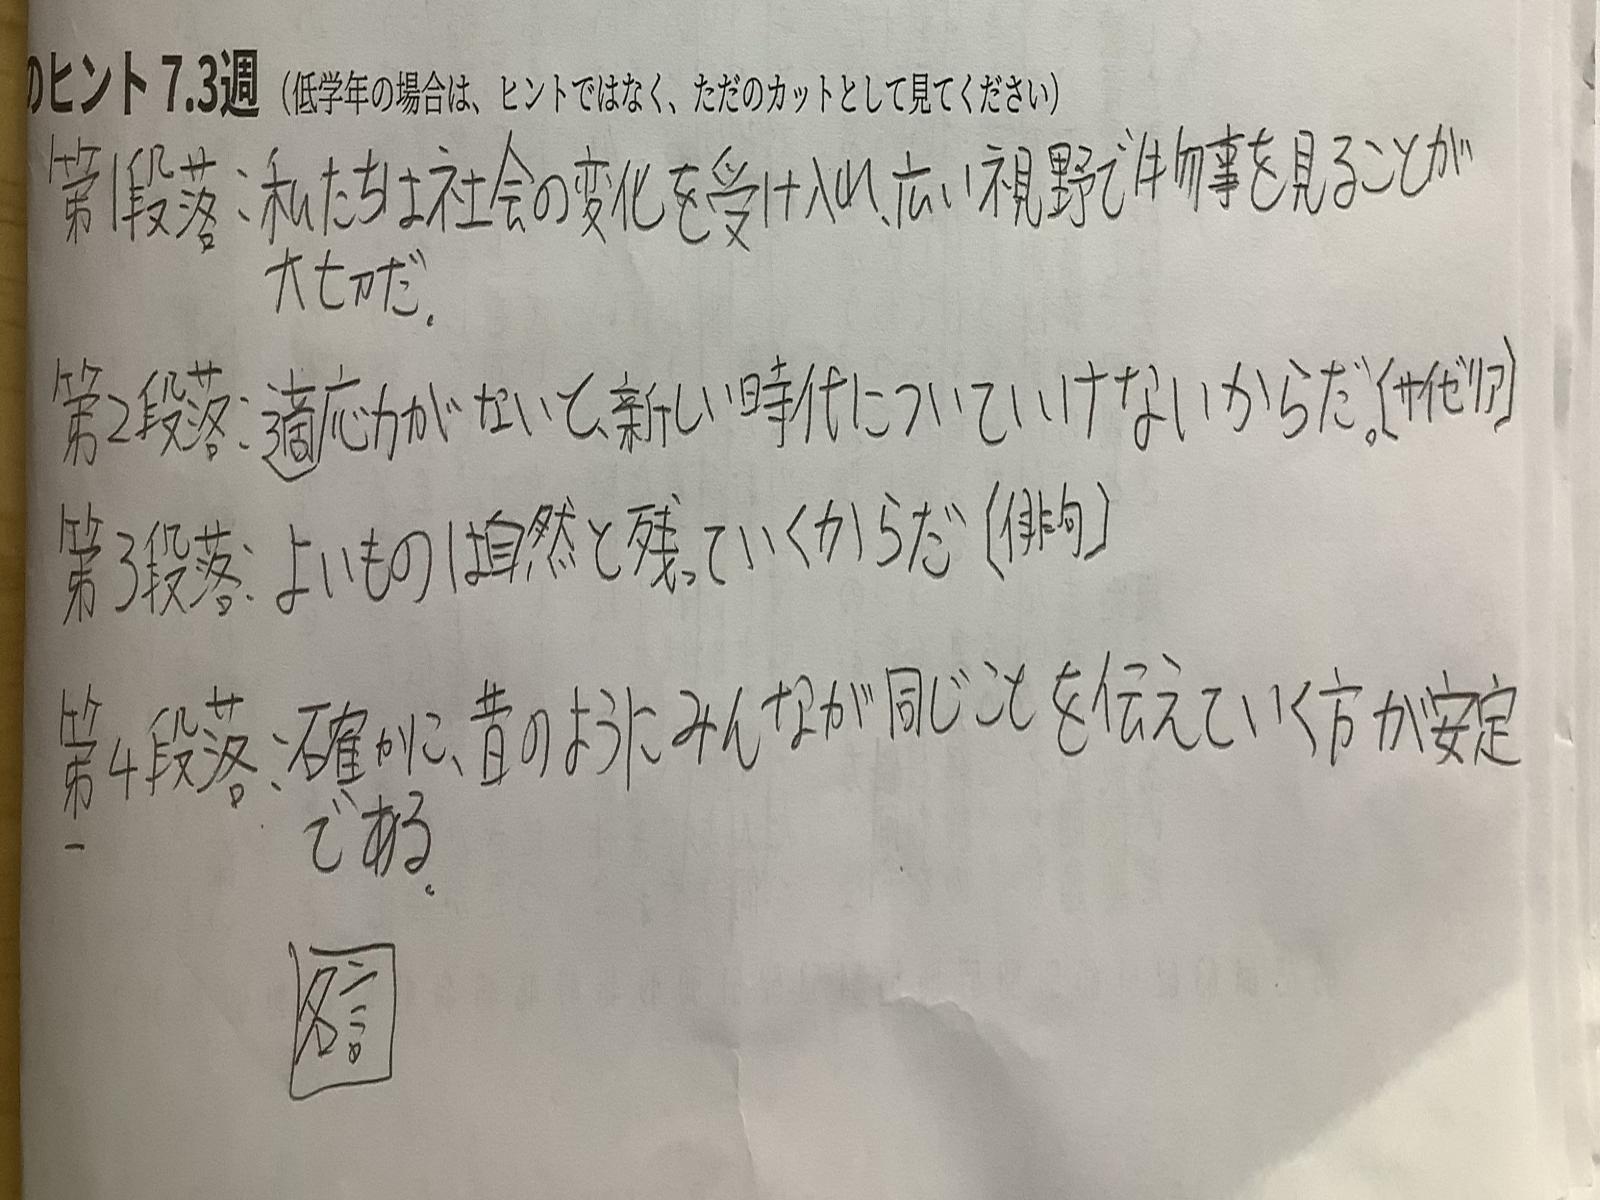 のヒント 7.3週（低学年の場合は、ヒントではなく、ただのカットとして見てください）
第1段落：私たちは社会の変化を受け入れ、広い視野で物事を見ることが
大切だ。
第2段落：適応力がないと、新しい時代についていけないからだ。〔サイゼリア〕
第3段落：よいものは自然と残っていくからだ〔俳句〕
第4段落：確かに、昔のようにみんなが同じことを伝えていく方が安定
である。
名言